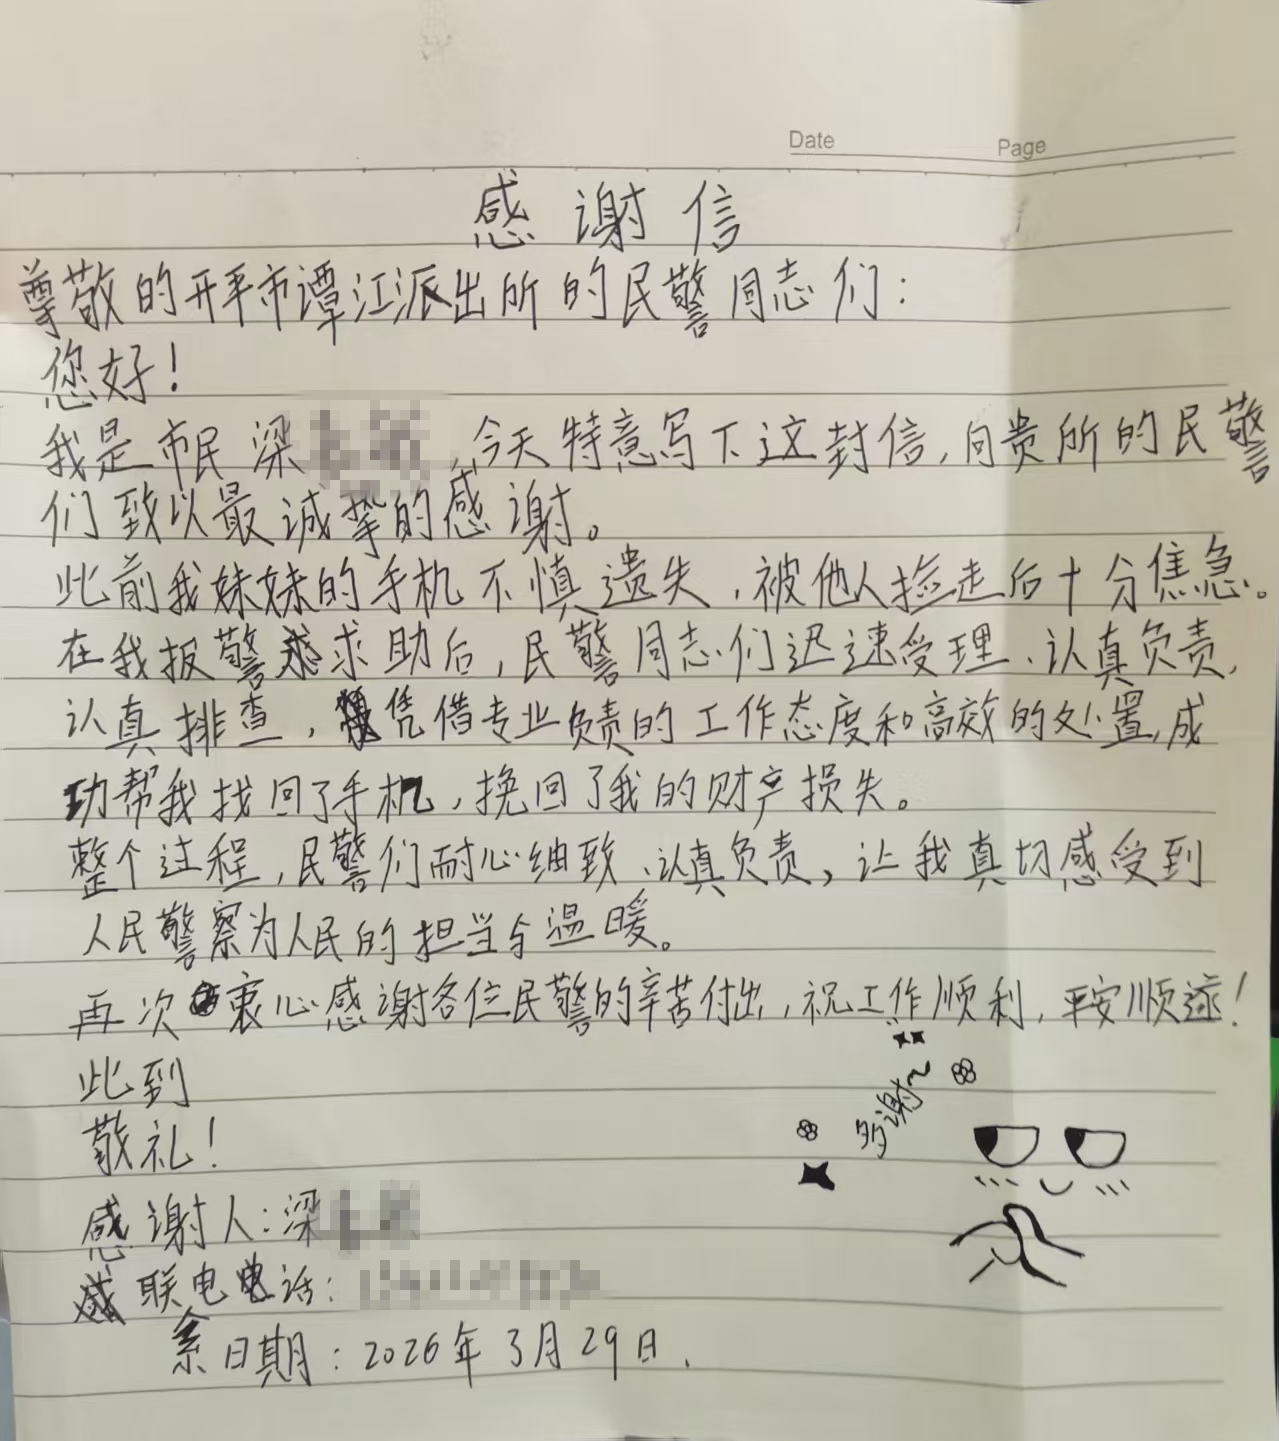 Date Page
感谢信
尊敬的开平市谭江派出所的民警同志们：
您好！
我是市民梁，今天特意写下这封信，向贵所的民警
们致以最诚挚的感谢。
此前我妹妹的手机不慎遗失，被他人捡走后十分焦急。
在我报警求助后，民警同志们迅速受理、认真负责，
认真排查，凭借专业负责的工作态度和高效的处置，成
功帮我找回了手机，挽回了我的财产损失。
整个过程，民警们耐心细致、认真负责，让我真切感受到
人民警察为人民的担当与温暖。
再次衷心感谢各位民警的辛苦付出，祝工作顺利，平安顺遂！
此到
敬礼！
多谢～
感谢人：梁
联电话：
系日期：2026年3月29日.